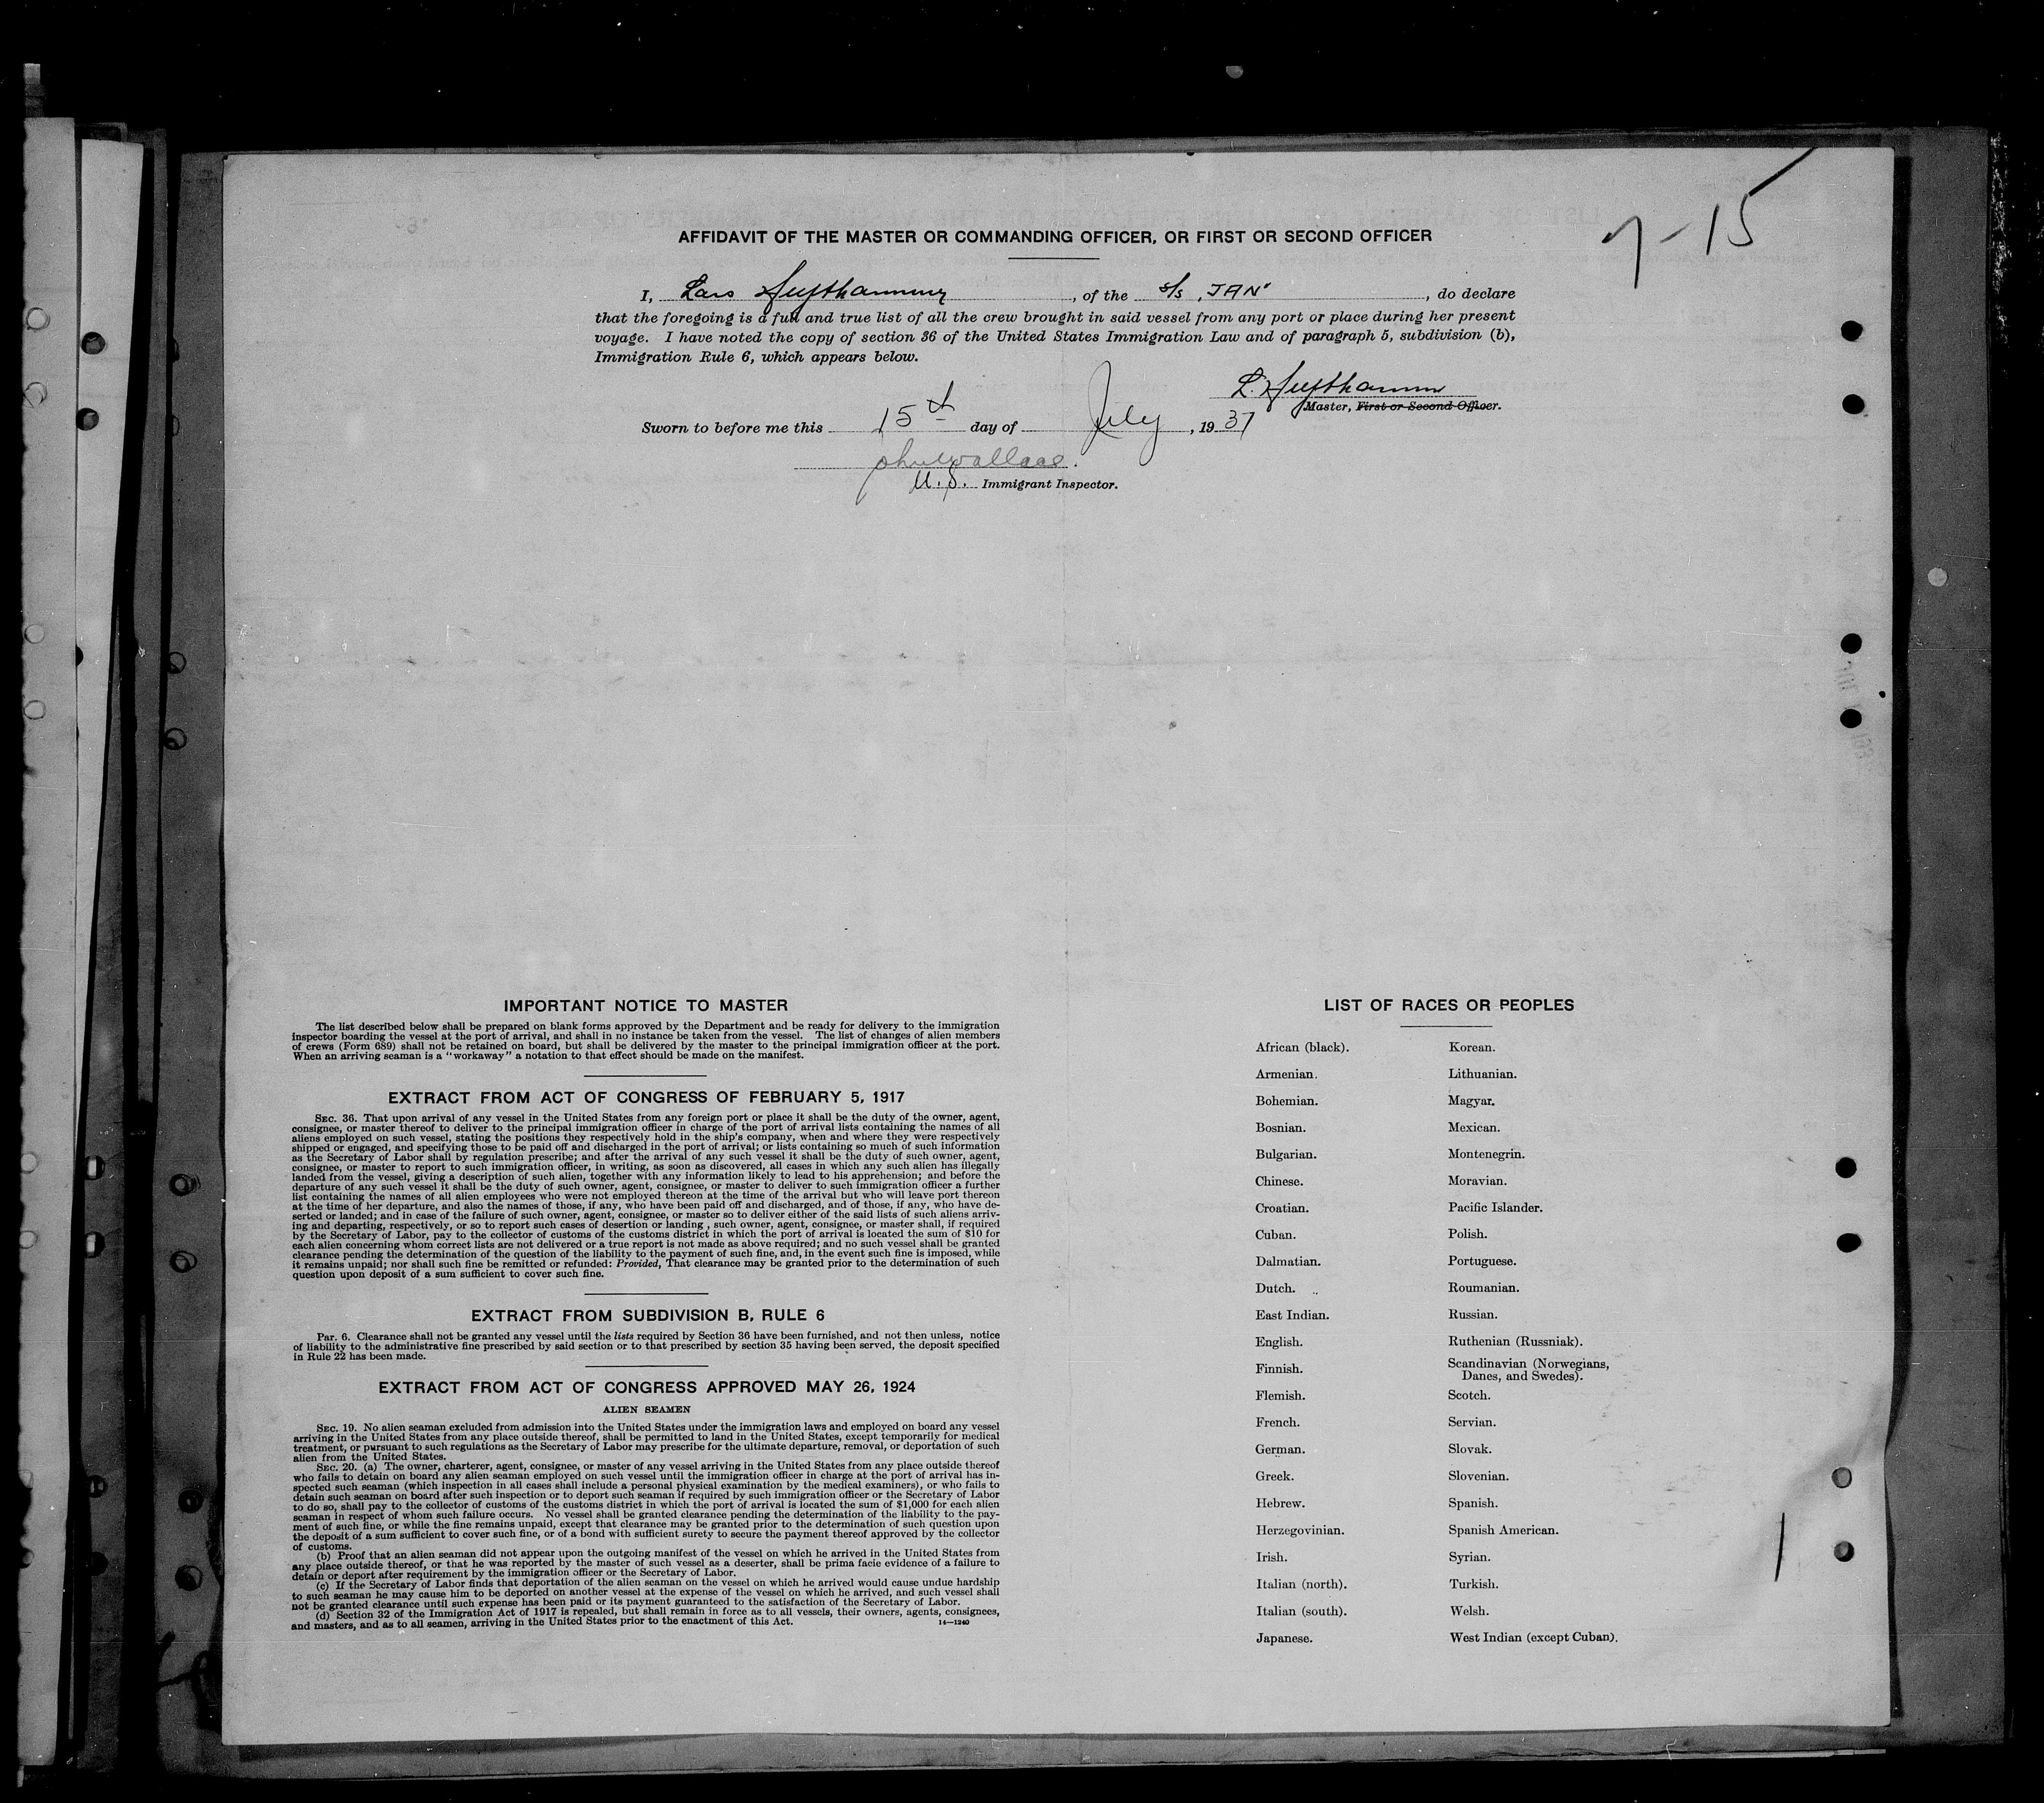 7-15
AFFIDAVIT OF THE MASTER OR COMMANDING OFFICER, OR FIRST OR SECOND OFFICER
I, Lars , of the S/S "JAN" , do declare
that the foregoing is a full and true list of all the crew brought in said vessel from any port or place during her present
voyage. I have noted the copy of section 36 of the United States Immigration Law and of paragraph 5, subdivision (b),
Immigration Rule 6, which appears below.
L.
Master, First or Second Officer.
Sworn to before me this 15th day of July, 1937
John Wallace.
U.S. Immigrant Inspector.
IMPORTANT NOTICE TO MASTER
The list described below shall be prepared on blank forms approved by the Department and be ready for delivery to the immigration
inspector boarding the vessel at the port of arrival, and shall in no instance be taken from the vessel. The list of changes of alien members
of crews (Form 689) shall not be retained on board, but shall be delivered by the master to the principal immigration officer at the port.
When an arriving seaman is a "workaway" a notation to that effect should be made on the manifest.
EXTRACT FROM ACT OF CONGRESS OF FEBRUARY 5, 1917
SEC. 36. That upon arrival of any vessel in the United States from any foreign port or place it shall be the duty of the owner, agent,
consignee, or master thereof to deliver to the principal immigration officer in charge of the port of arrival lists containing the names of all
aliens employed on such vessel, stating the positions they respectively hold in the ship's company, when and where they were respectively
shipped or engaged, and specifying those to be paid off and discharged in the port of arrival; or lists containing so much of such information
as the Secretary of Labor shall by regulation prescribe; and after the arrival of any such vessel it shall be the duty of such owner, agent,
consignee, or master to report to such immigration officer, in writing, as soon as discovered, all cases in which any such alien has illegally
landed from the vessel, giving a description of such alien, together with any information likely to lead to his apprehension; and before the
departure of any such vessel it shall be the duty of such owner, agent, consignee, or master to deliver to such immigration officer a further
list containing the names of all alien employees who were not employed thereon at the time of the arrival but who will leave port thereon
at the time of her departure, and also the names of those, if any, who have been paid off and discharged, and of those, if any, who have de-
serted or landed; and in case of the failure of such owner, agent, consignee, or master so to deliver either of the said lists of such aliens arriv-
ing and departing, respectively, or so to report such cases of desertion or landing , such owner, agent, consignee, or master shall, if required
by the Secretary of Labor, pay to the collector of customs of the customs district in which the port of arrival is located the sum of $10 for
each alien concerning whom correct lists are not delivered or a true report is not made as above required; and no such vessel shall be granted
clearance pending the determination of the question of the liability to the payment of such fine, and, in the event such fine is imposed, while
it remains unpaid; nor shall such fine be remitted or refunded: Provided, That clearance may be granted prior to the determination of such
question upon deposit of a sum sufficient to cover such fine.
EXTRACT FROM SUBDIVISION B, RULE 6
Par. 6. Clearance shall not be granted any vessel until the lists required by Section 36 have been furnished, and not then unless, notice
of liability to the administrative fine prescribed by said section or to that prescribed by section 35 having been served, the deposit specified
in Rule 22 has been made.
EXTRACT FROM ACT OF CONGRESS APPROVED MAY 26, 1924
ALIEN SEAMEN
SEC. 19. No alien seaman excluded from admission into the United States under the immigration laws and employed on board any vessel
arriving in the United States from any place outside thereof, shall be permitted to land in the United States, except temporarily for medical
treatment, or pursuant to such regulations as the Secretary of Labor may prescribe for the ultimate departure, removal, or deportation of such
alien from the United States.
SEC. 20. (a) The owner, charterer, agent, consignee, or master of any vessel arriving in the United States from any place outside thereof
who fails to detain on board any alien seaman employed on such vessel until the immigration officer in charge at the port of arrival has in-
spected such seaman (which inspection in all cases shall include a personal physical examination by the medical examiners), or who fails to
detain such seaman on board after such inspection or to deport such seaman if required by such immigration officer or the Secretary of Labor
to do so, shall pay to the collector of customs of the customs district in which the port of arrival is located the sum of $1,000 for each alien
seaman in respect of whom such failure occurs. No vessel shall be granted clearance pending the determination of the liability to the pay-
ment of such fine, or while the fine remains unpaid, except that clearance may be granted prior to the determination of such question upon
the deposit of a sum sufficient to cover such fine, or of a bond with sufficient surety to secure the payment thereof approved by the collector
of customs.
(b) Proof that an alien seaman did not appear upon the outgoing manifest of the vessel on which he arrived in the United States from
any place outside thereof, or that he was reported by the master of such vessel as a deserter, shall be prima facie evidence of a failure to
detain or deport after requirement by the immigration officer or the Secretary of Labor.
(c) If the Secretary of Labor finds that deportation of the alien seaman on the vessel on which he arrived would cause undue hardship
to such seaman he may cause him to be deported on another vessel at the expense of the vessel on which he arrived, and such vessel shall
not be granted clearance until such expense has been paid or its payment guaranteed to the satisfaction of the Secretary of Labor.
(d) Section 32 of the Immigration Act of 1917 is repealed, but shall remain in force as to all vessels, their owners, agents, consignees,
and masters, and as to all seamen, arriving in the United States prior to the enactment of this Act. 14—1240
LIST OF RACES OR PEOPLES
African (black). Korean.
Armenian. Lithuanian.
Bohemian. Magyar.
Bosnian. Mexican.
Bulgarian. Montenegrin.
Chinese. Moravian.
Croatian. Pacific Islander.
Cuban. Polish.
Dalmatian. Portuguese.
Dutch. Roumanian.
East Indian. Russian.
English. Ruthenian (Russniak).
Finnish. Scandinavian (Norwegians,
Danes, and Swedes).
Flemish. Scotch.
French. Servian.
German. Slovak.
Greek. Slovenian.
Hebrew. Spanish.
Herzegovinian. Spanish American.
Irish. Syrian.
Italian (north). Turkish.
Italian (south). Welsh.
Japanese. West Indian (except Cuban).